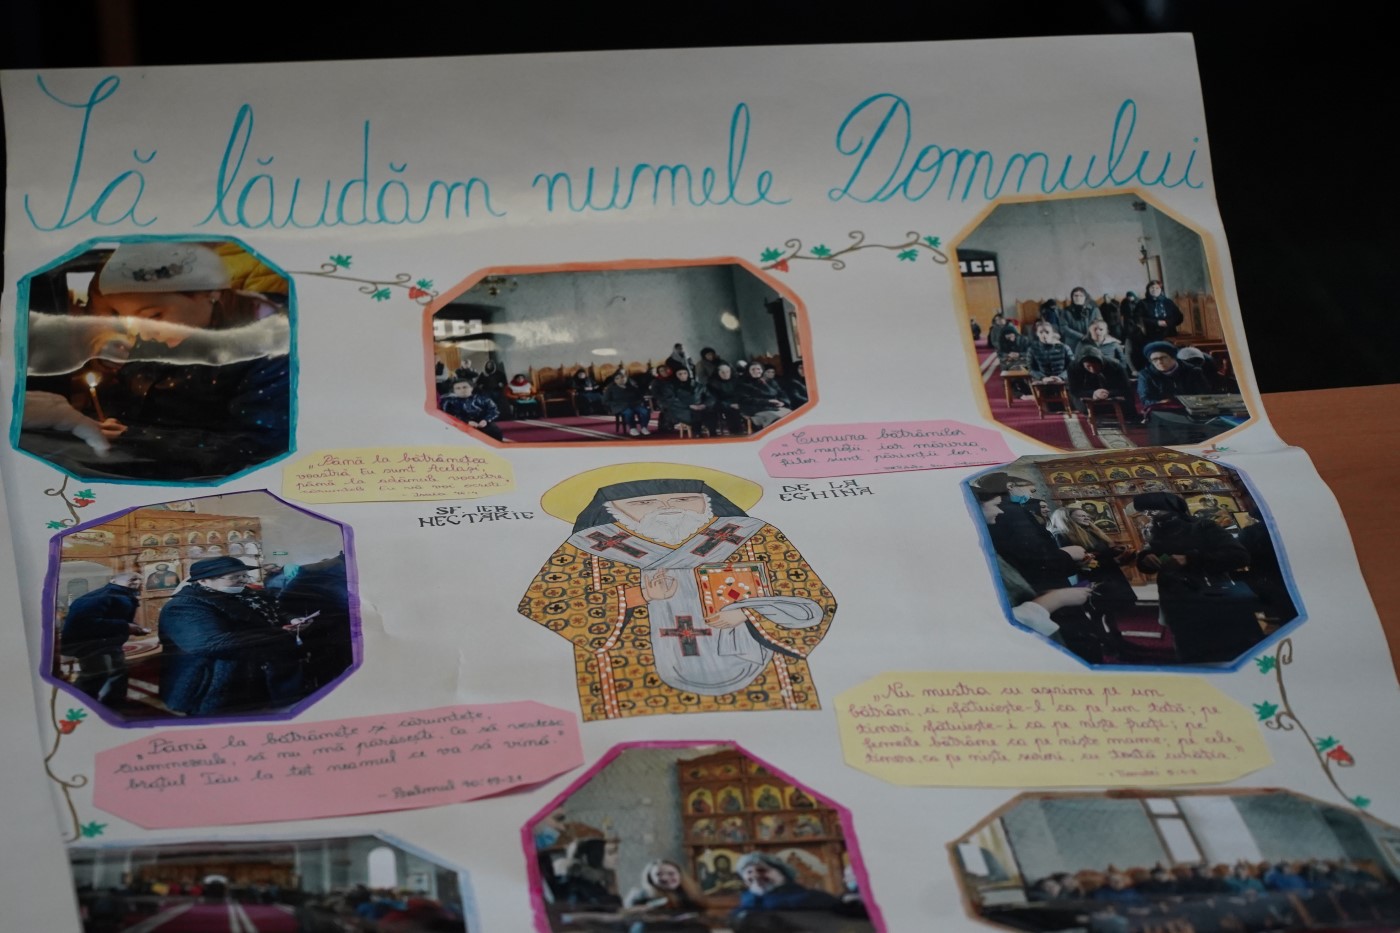 Să lăudăm numele Domnului
„Până la bătrânețea
voastră Eu sunt Același,
până la adâncul voastre,
cărunteți Eu vă voi ocroti."
- Isaia 46:4
„Cununa bătrânilor
sunt nepoții, iar mărirea
fiilor sunt părinții lor."
SF IER
NECTARIE
DE LA
EGHINA
„Până la bătrânețe și căruntețe,
Dumnezeule, să nu mă părăsești, Ca să vestesc
brațul Tău la tot neamul ce va să vină."
- Psalmul 70:19-21
„Nu mustra cu asprime pe un
bătrân, ci sfătuiește-l ca pe un tată; pe
tineri sfătuiește-i ca pe niște frați; pe
femeile bătrâne ca pe niște mame; pe cele
tinere, ca pe niște surori, cu toată curăția."